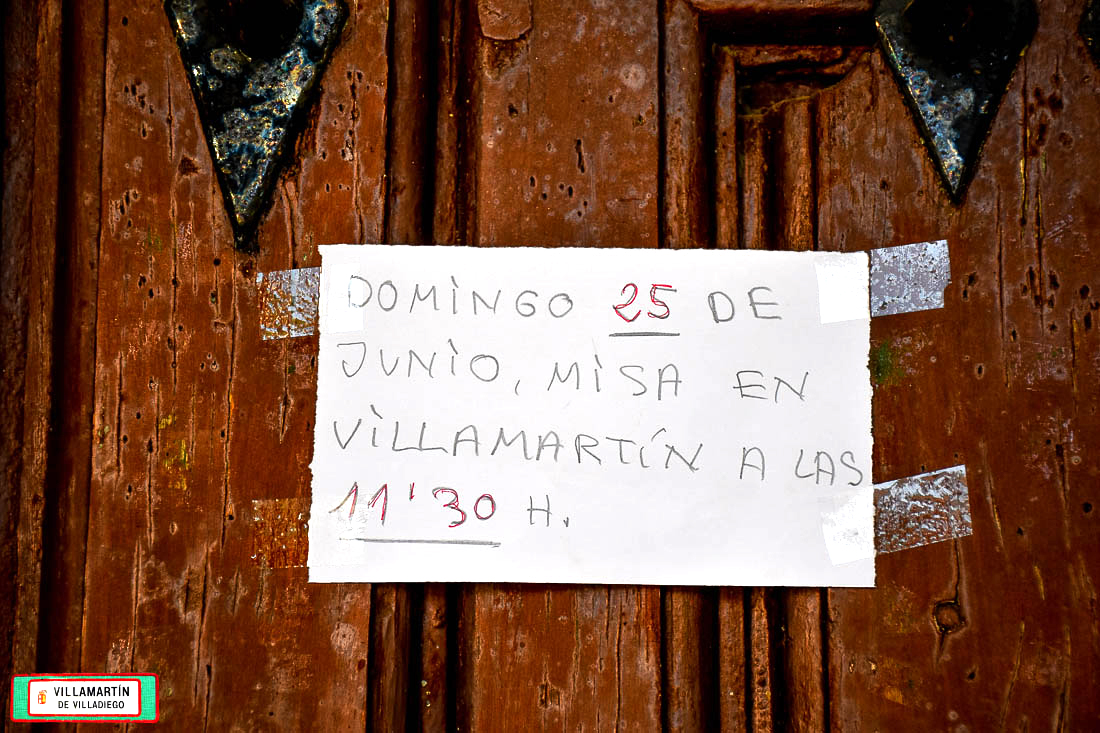 DOMINGO 25 DE
JUNIO, MISA EN
VILLAMARTÍN A LAS
11'30 H.
VILLAMARTÍN
DE VILLADIEGO